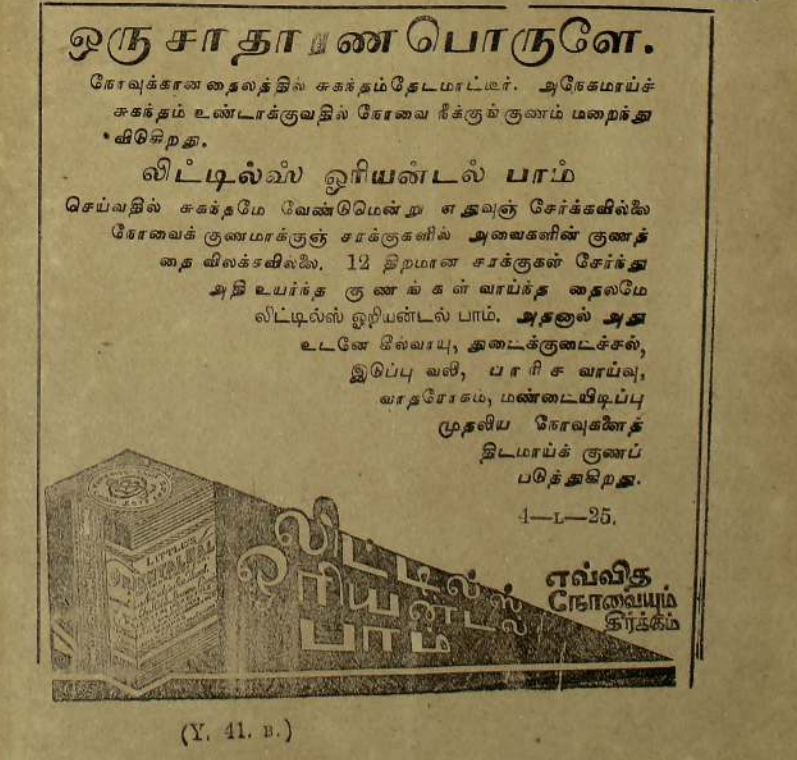 ஒரு சாதாரண பொருளே.
நோவுக்கான தைலத்தில் சுகந்தம்தேடமாட்டீர். அநேகமாய்ச்
சுகந்தம் உண்டாக்குவதில் நோவை நீக்குங் குணம் மறைந்து
விடுகிறது.
லிட்டில்ஸ் ஓரியன்டல் பாம்
செய்வதில் சுகந்தமே வேண்டுமென்று எதுவுஞ் சேர்க்கவில்லை
நோவைக் குணமாக்குஞ் சரக்குகளில் அவைகளின் குணத்
தை விலக்கவில்லை. 12 திறமான சரக்குகள் சேர்ந்து
அதி உயர்ந்த குணங்கள் வாய்ந்த தைலமே
லிட்டில்ஸ் ஓரியன்டல் பாம். அதனால் அது
உடனே கீல்வாயு, துடைக்குடைச்சல்,
இடுப்பு வலி, பாரிச வாய்வு,
வாதரோகம், மண்டையிடிப்பு
முதலிய நோவுகளைத்
திடமாய்க் குணப்
படுத்துகிறது.
4—L—25.
LITTLE'S
ORIENTAL
லிட்டில்ஸ்
ஓரியன்டல்
பாம்
எவ்வித
நோவையும்
தீர்க்கும்
(Y. 41. B.)